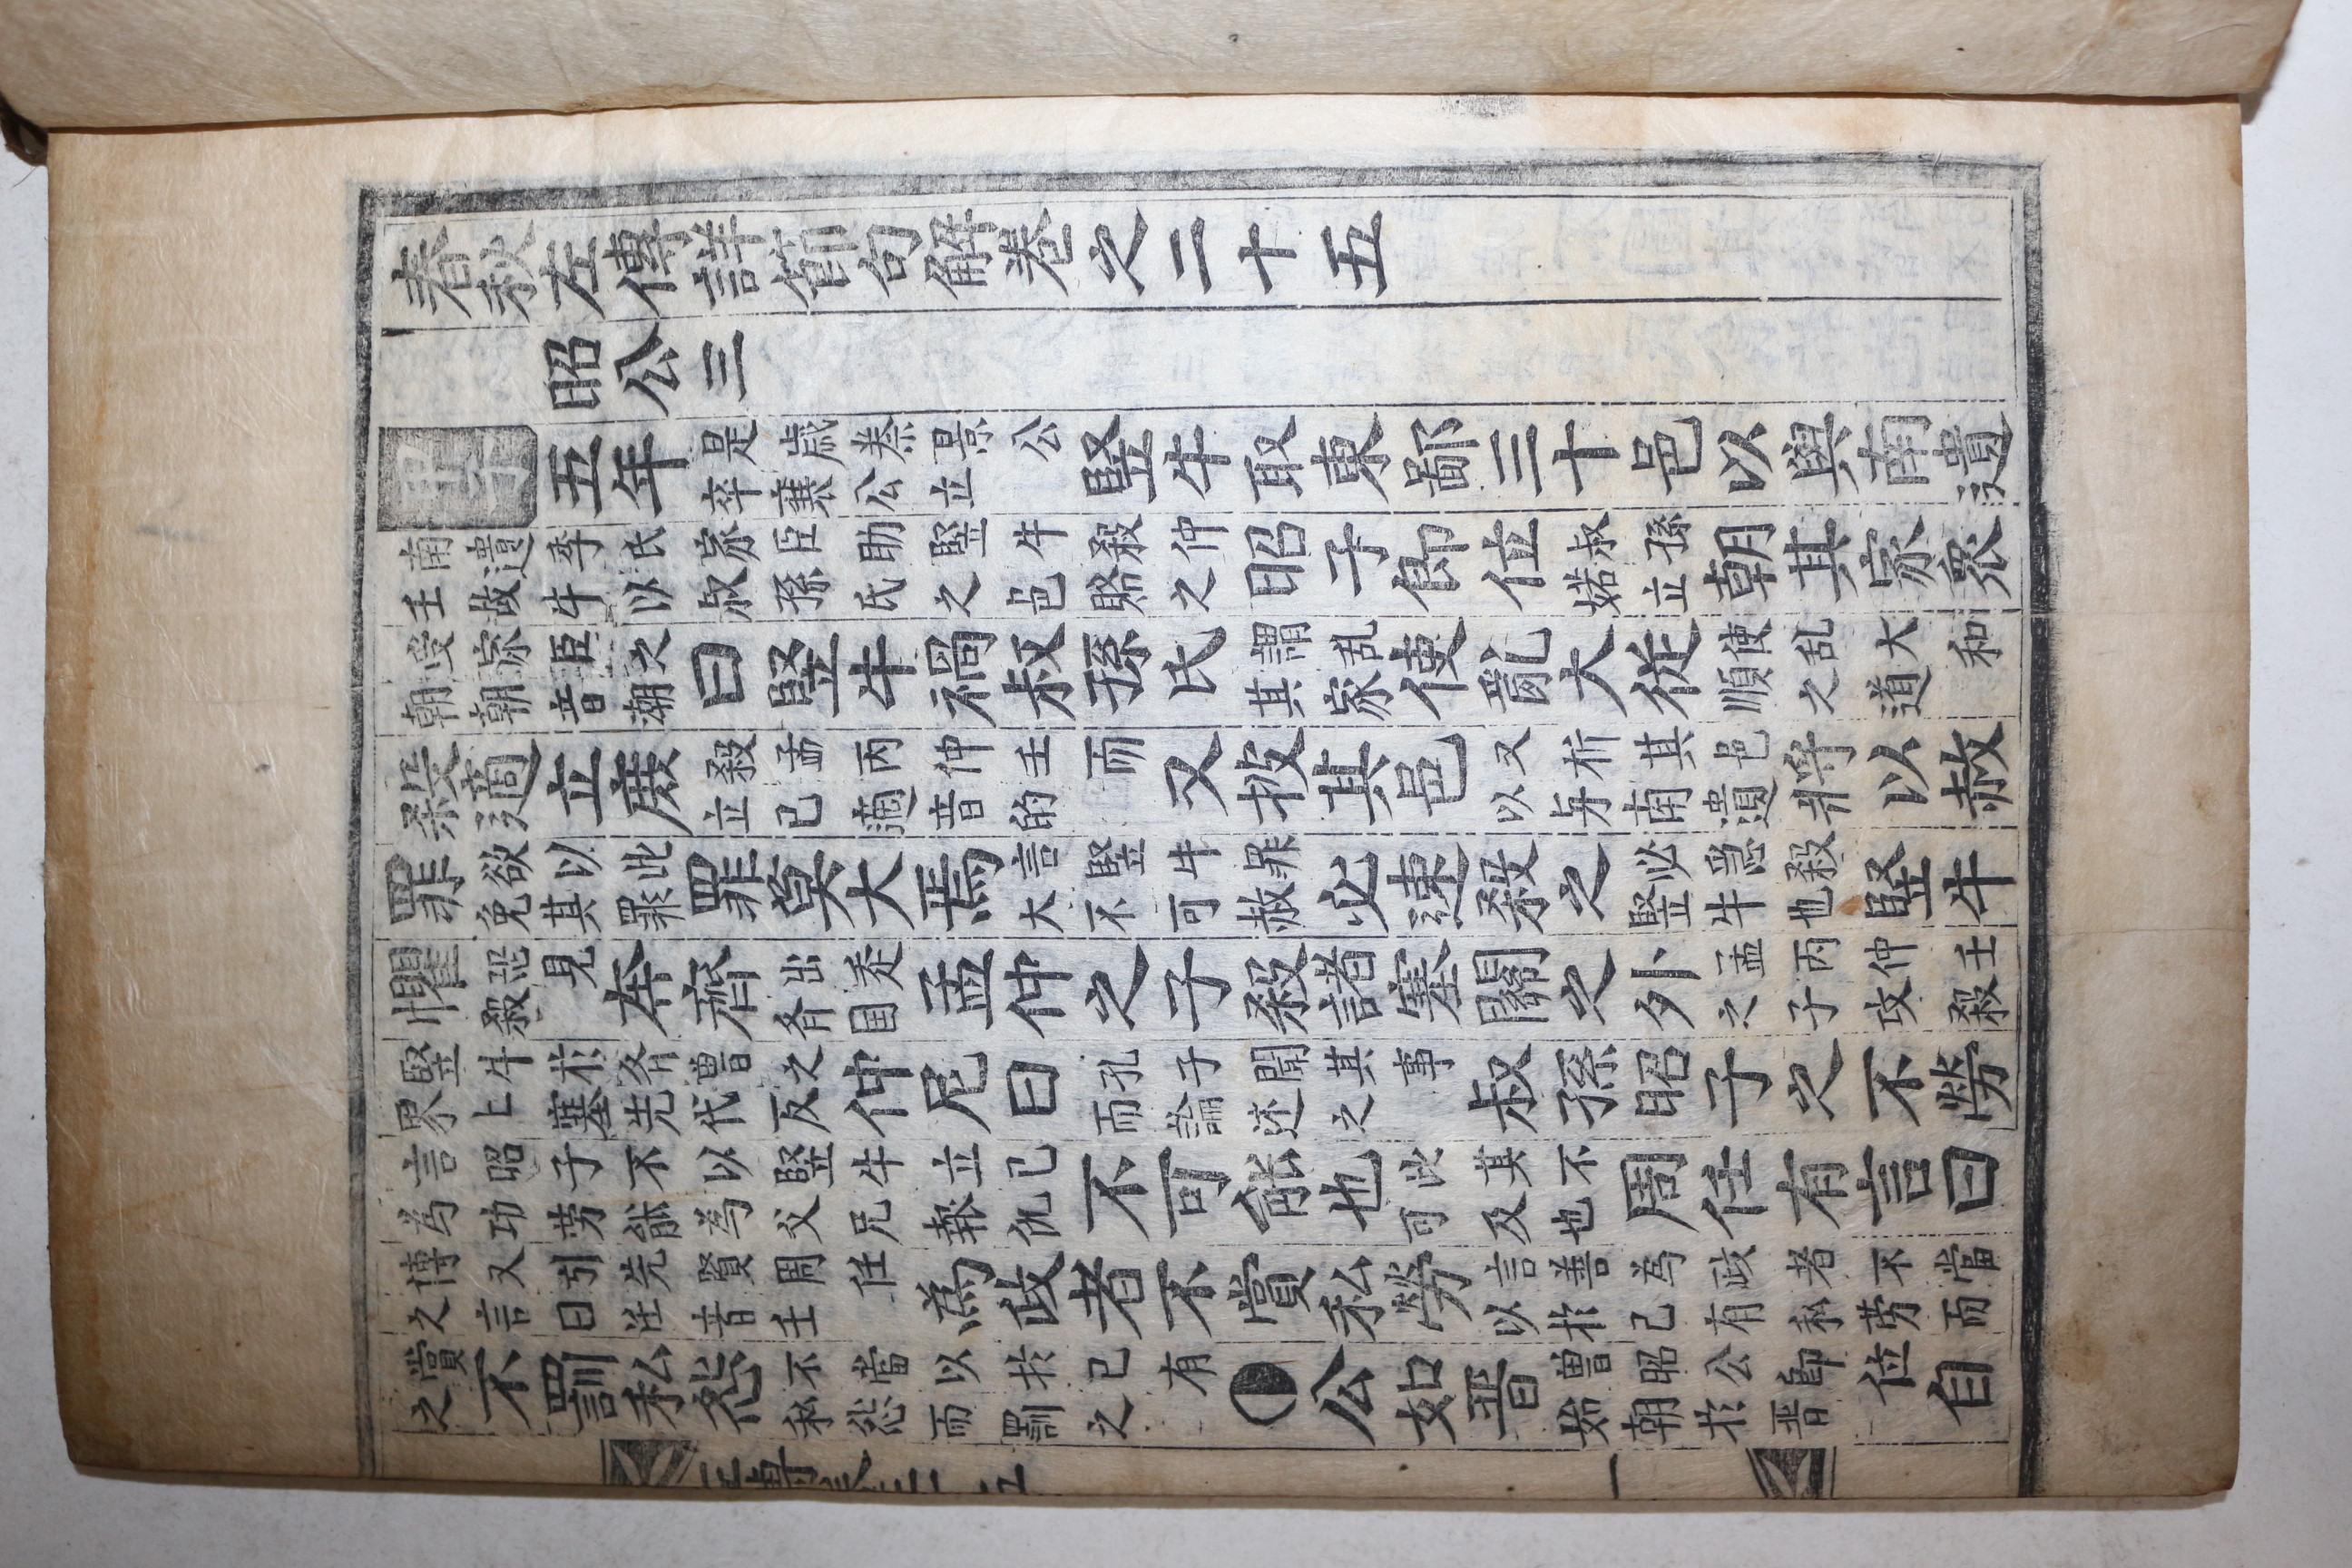 春秋左傳詳節句解卷之二十五
昭公三
甲子五年是歲秦景公卒襄公立竪牛取東鄙三十邑以與南遺
南遺季氏家臣助竪牛殺仲壬故牛以叔孫氏之邑賂之昭子即位叔孫婼立朝其家衆
受家臣之朝朝音潮曰竪牛禍叔孫氏謂乱其家使亂大從使乱大和順之道
殺適立庶殺孟丙仲壬而立己適音的又披其邑又析其邑以与南遺將以赦
罪欲以此免其罪罪莫大焉言竪牛罪大不可赦必速殺之必急殺竪牛也竪牛
懼恐見殺奔齊出走齐国孟仲之子殺諸塞關之外孟丙仲壬之子攻殺
竪牛於齐魯之界上塞先代反仲尼曰孔子聞其事而論述之叔孫昭子之不勞
言昭子不以竪牛立己為功劳能為父兄報仇不可能也此其不可及也周任有言曰
博又引先賢周任之言曰任音壬為政者不賞私勞言善為政者不當以於己有私劳而
賞之不罰私怨不當以於己有私怨而罰之◑公如晋魯昭公即位始朝於晋自
左傳卷二十五 一